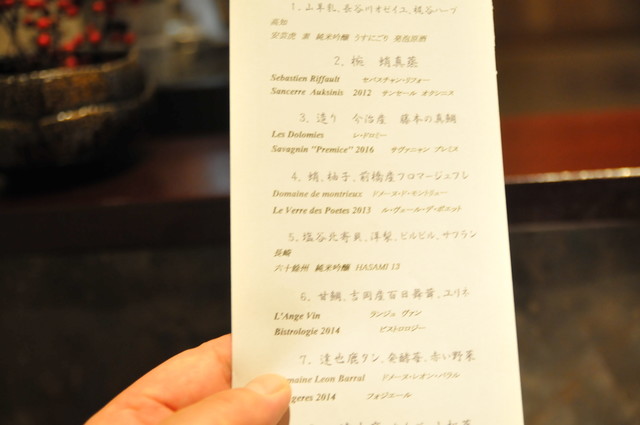 1. 山羊乳、長谷川オゼイユ、梶谷ハーブ
高知
安芸虎 素 純米吟醸 うすにごり 発泡原酒
2. 椀 蛸真蒸
Sebastien Riffault セバスチャン・リフォー
Sancerre Auksinis 2012 サンセール オクシニス
3. 造り 今治産 藤本の真鯛
Les Dolomies レ・ドロミー
Savagnin "Premice" 2016 サヴァニャン プレミス
4. 蛸、柚子、前橋産フロマージュブレ
Domaine de montrieux ドメーヌ・ド・モントリュー
Le Verre des Poetes 2013 ル・ヴェール・デ・ポエット
5. 塩谷北寄貝、洋梨、ピルピル、サフラン
長崎
六十餘州 純米吟醸 HASAMI 13
6. 甘鯛、吉岡産百日舞茸、ユリネ
L'Ange Vin ランジュ ヴァン
Bistrologie 2014 ビストロロジー
7. 達也鹿タン、発酵苺、赤い野菜
maine Leon Barral ドメーヌ・レオン・バラル
geres 2014 フォジェール